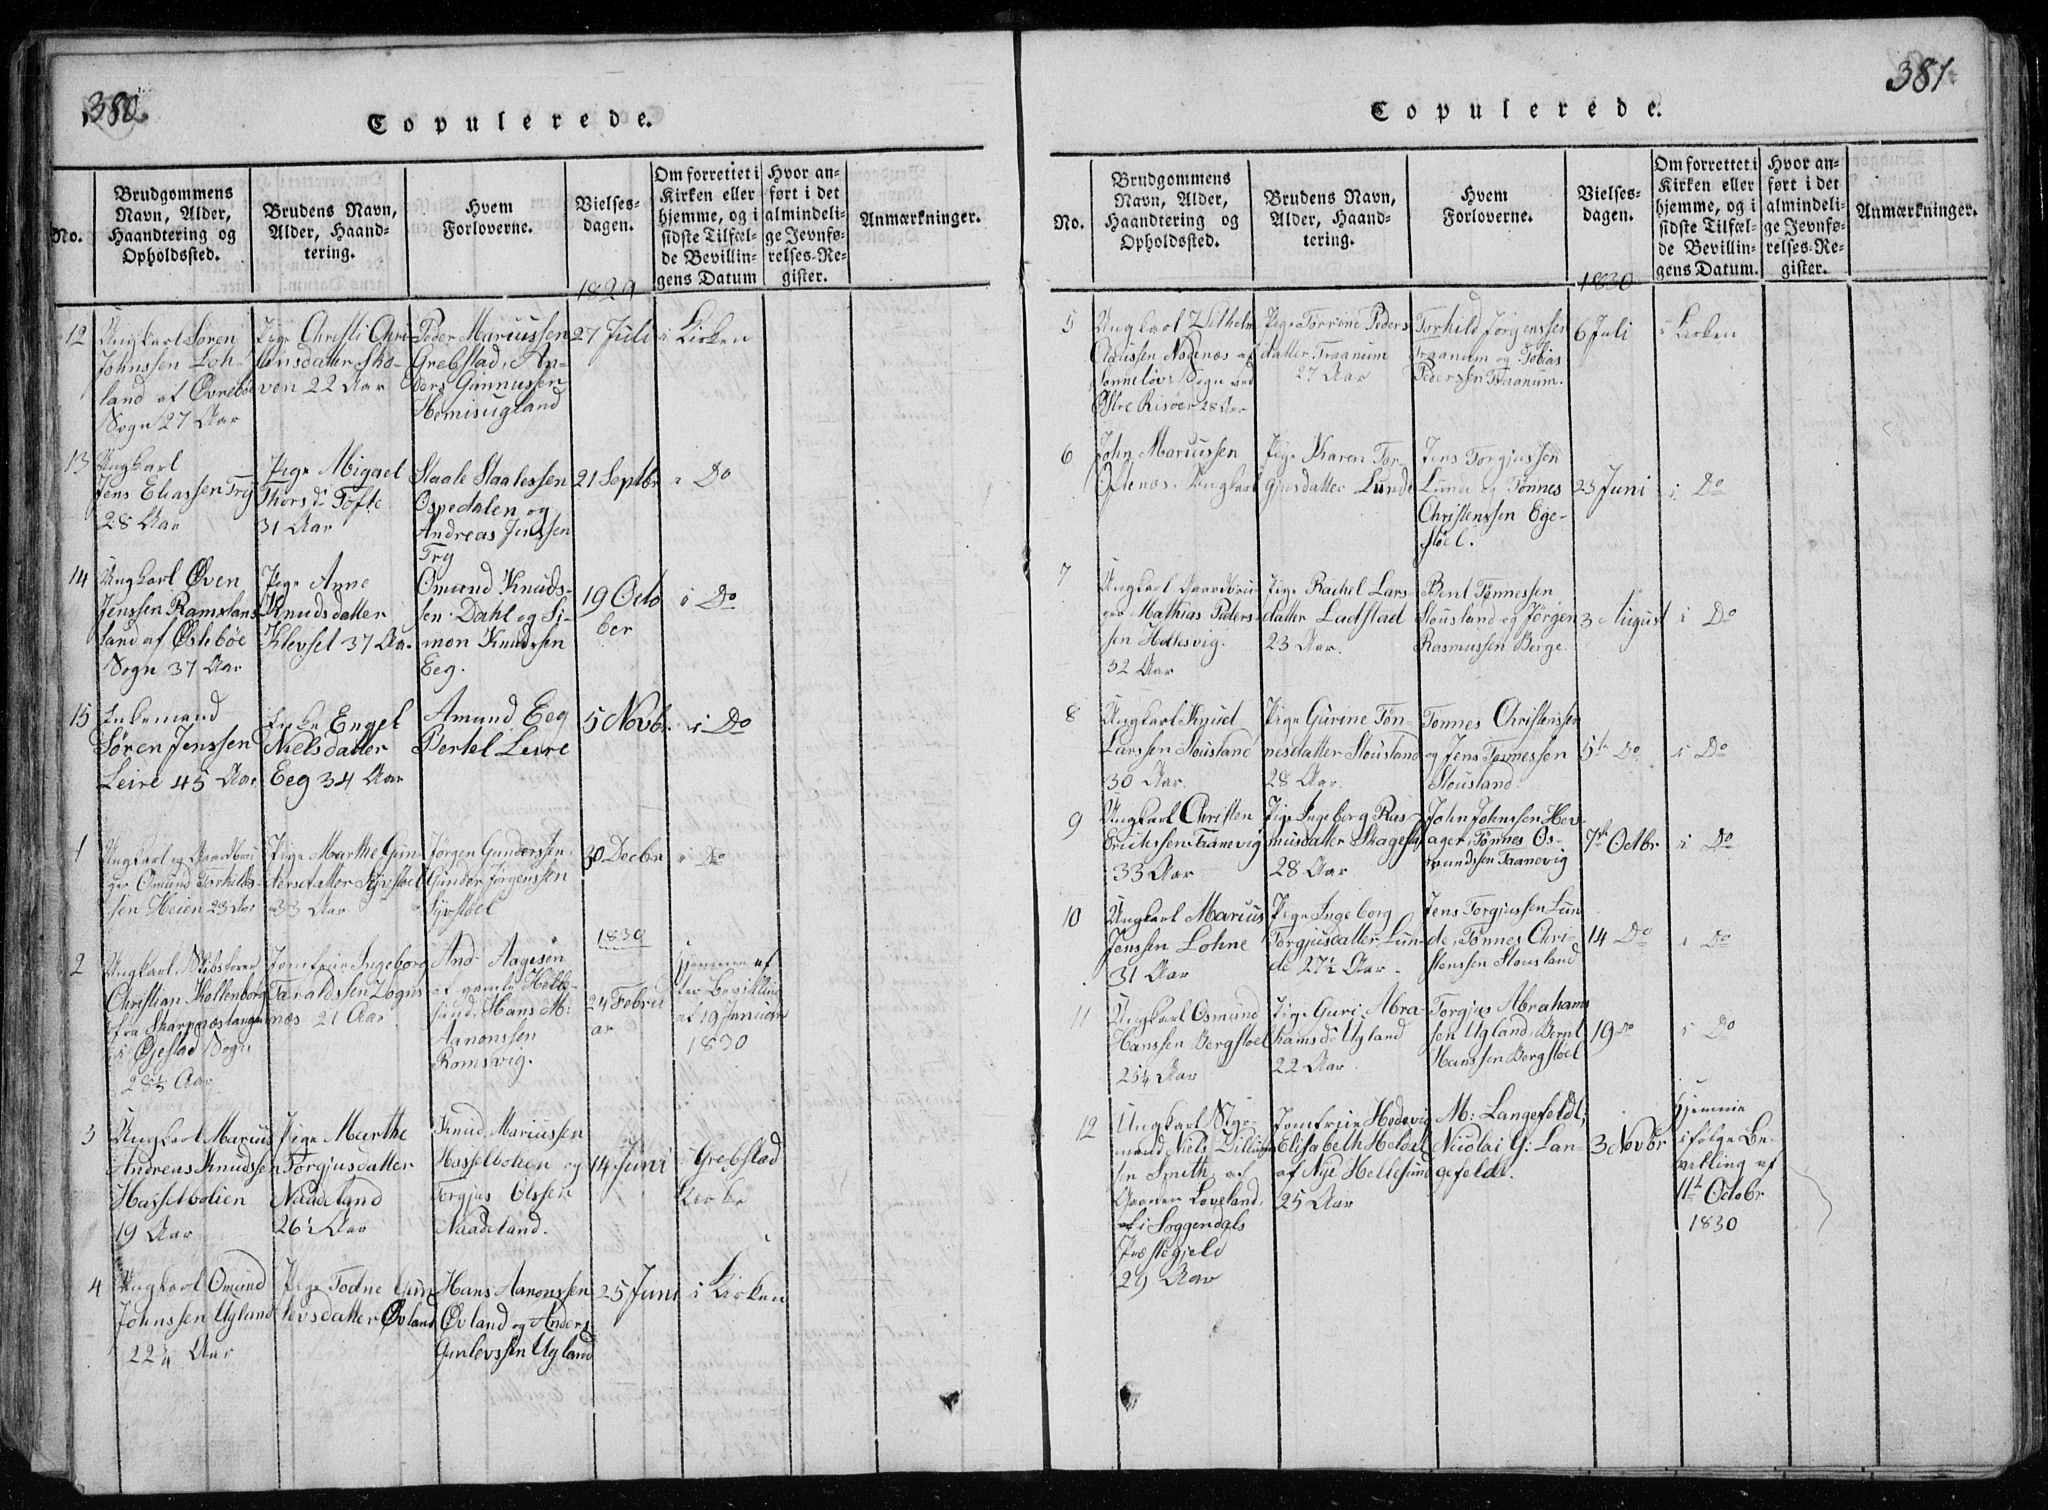 380.
Copulerede.
No.
Brudgommens
Navn, Alder,
Haandtering og
Opholdssted.
Brudens Navn,
Alder, Haand-
tering.
Hvem
Forloverne.
Vielses-
dagen.
Om forrettet i
Kirken eller
hjemme, og i
sidste Tilfæl-
de Bevillin-
gens Datum
Hvor an-
ført i det
almindeli-
ge Jevnfø-
relses-Re-
gister.
Anmærkninger.
1829
12
Ungkarl Søren
Johnssen Loh-
land af Øvrebøe
Sogn 27 Aar
Pige Christi Chri-
stensdatter Sko-
ven 22 Aar
Peder Mariussen
Grebstad, An-
ders Gunnussen
Hemisugland
27 Juli
i Kirken
13
Ungkarl
Jens Eliassen Try
28 Aar
Pige Migael
Thors D: Tofte
31 Aar
Staale Staalessen
Ospedalen og
Andreas Jenssen
Try
21 Septbr
i Do
14
Ungkarl Øven
Jenssen Ramslans-
land af Østebøe
Sogn 37 Aar
Pige Anne
Knudsdatter
Klevset 37 Aar
Omund Knuds-
sen Dahl og Si-
mon Knudssen
Eeg.
19 Octo
ber
i Do
15
Enkemand
Søren Jenssen
Leire 45 Aar
Enke Engel
Nielsdatter
Eeg 34 Aar
Amund Eeg
Bertel Leire
5 Novbr.
i Do
1
Ungkarl og Gaardbru
ger Omund Torkilds-
sen Heien 23 Aar
Pige Marthe Gun-
dersdatter Syvstoel
33 Aar
Jørgen Gunderssen
Gunder Jørgenssen
Syvstoel
30 Decbr
i Do
1830
2
Ungkarl, Skibsfører
Christian Kallenborg
fra Skarpnæslangen
i Øjestad Sogn
28½ Aar
Jomfrue Ingeborg
Taraldssen Vogns
næs 21 Aar
And: Aagesen
af gamle Helle-
sund, Hans M:
Aanonssen
Romsvig.
24 Febru
ar
hjemme ef
ter Bevilling
af 19 Januar
1830
3
Ungkarl Marius
Andreas Knudssen
Hasselbolien
19 Aar
Pige Marthe
Torgjusdatter
Naadeland
26½ Aar
Knud Mariussen
Hasselbolien og
Torgjus Olssen
Naadeland.
14 Juni
i Grebstad
Kirke
4
Ungkarl Omund
Johnssen Ugland
22¾ Aar
Pige Todne Gun
levsdatter Øvland
Hans Aanonssen
Øvland og Anders
Gunlevssen Ugland
25 Juni
i Kirken
381.
Copulerede.
No.
Brudgommens
Navn, Alder,
Haandtering og
Opholdssted.
Brudens Navn,
Alder, Haand-
tering.
Hvem
Forloverne.
Vielses-
dagen.
Om forrettet i
Kirken eller
hjemme, og i
sidste Tilfæl-
de Bevillin-
gens Datum.
Hvor an-
ført i det
almindeli-
ge Jevnfø-
relses-Re-
gister.
Anmærkninger.
1830
5
Ungkarl Vilhelm
Claussen Nodenæs af
Sønneløvs Sogn ved
Østre Risøer 28 Aar
Pige Torrine Peders
datter Traanum
27 Aar
Torkild Jørgenssen
Traanum og Tobias
Pederssen Traanum.
6 Juli
i Kirken
6
John Mariussen
Oftenæs, Ungkarl
Pige Karen Tor-
gjusdatter Lunde
Jens Torgjussen
Lunde og Tønnes
Christenssen Ege-
støel.
23 Juni
i Do
7
Ungkarl Gaardbru
ger Mathias Peders-
sen Hellesvig.
32 Aar
Pige Rachel Lars-
datter Ladstad
23 Aar.
Bent Tønnessen
Stousland og Jørgen
Rasmussen Berge
3 August
i Do
8
Ungkarl Knud
Larssen Stousland
30 Aar.
Pige Gurine Tøn-
nesdatter Stousland
28 Aar.
Tønnes Christenssen
og Jens Tønnessen
Stousland.
5te Do
i Do
9
Ungkarl Christen
Erichssen Tranevig
33 Aar
Pige Ingeborg Ras-
musdatter Skagestad
28 Aar
John Johnssen Hev-
ager, Tønnes Os-
mundssen Taanevig
7de Octbr
i Do
10
Ungkarl Marius
Jenssen Lohne
31 Aar
Pige Ingeborg
Torgjusdatter Lun-
de 27½ Aar.
Jens Torgjussen Lun
de, Tønnes Chri-
stenssen Stousland
14 Do
i Do
11
Ungkarl Osmund
Hanssen Bergstoel
25¼ Aar
Pige Guri Abra-
hams D: Ugland
22 Aar
Torgjus Abrahams
sen Ugland, Bernt
Hanssen Bergstoel
19 Do
i Do
12
Ungkarl, Styr
mand Niels
sen Smith, af
Gaarden Loveland
i Soggendals
Præstegjeld
29 Aar
Jomfrue Hedevig
Elisabeth Heldel
af Nye Hellesund
25 Aar
M: Langefeldt,
Nicolai G: Lan-
gefeldt.
3 Novbr
hjemme
ifølge Be-
villing af
11te Octobr
1830